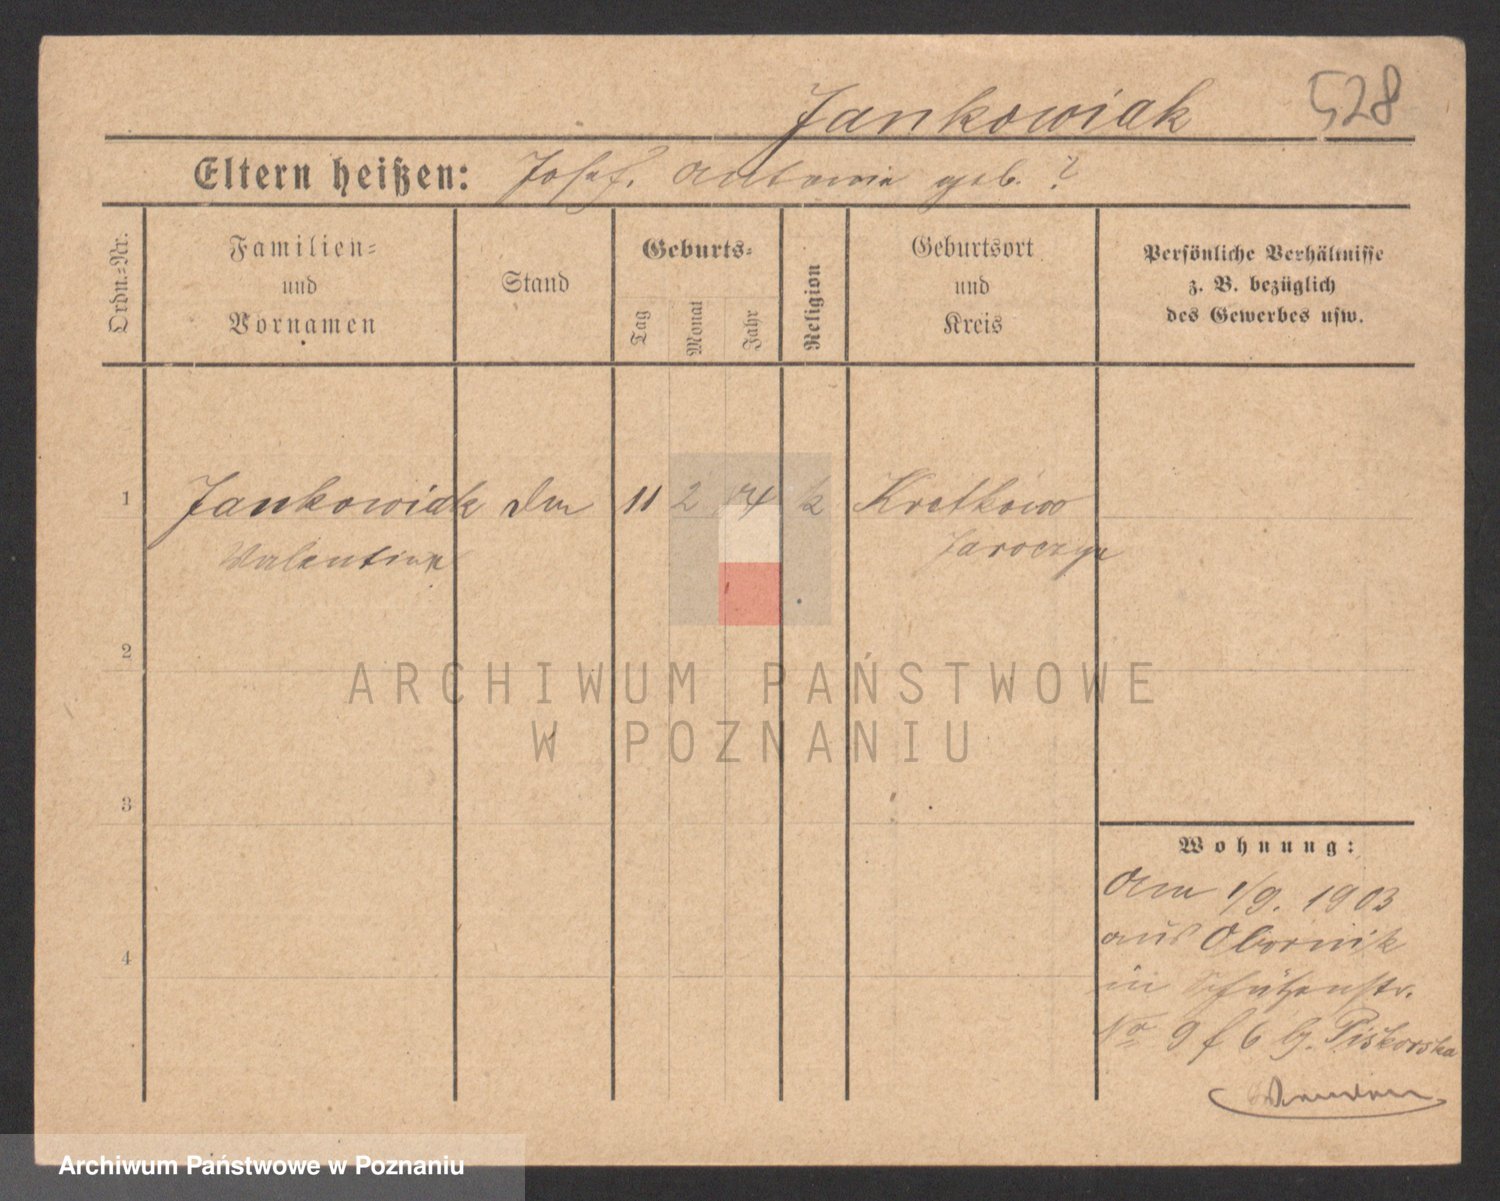 Jankowiak 528
Eltern heißen: Josef. Antonie geb. ?
Ordn.=Nr.
Familien=
und
Vornamen
Stand
Geburts=
Tag
Monat
Jahr
Religion
Geburtsort
und
Kreis
Persönliche Verhältnisse
z. B. bezüglich
des Gewerbes usw.
1 Jankowiak 11 2 k Kretkowo
Valentine Jaroczyn
2
ARCHIWUM PAŃSTWOWE
W POZNANIU
3
Wohnung:
Am 1/9. 1903
aus Obornik
4
in Schützenstr.
No 9 f 6 b. Piskorska
Archiwum Państwowe w Poznaniu